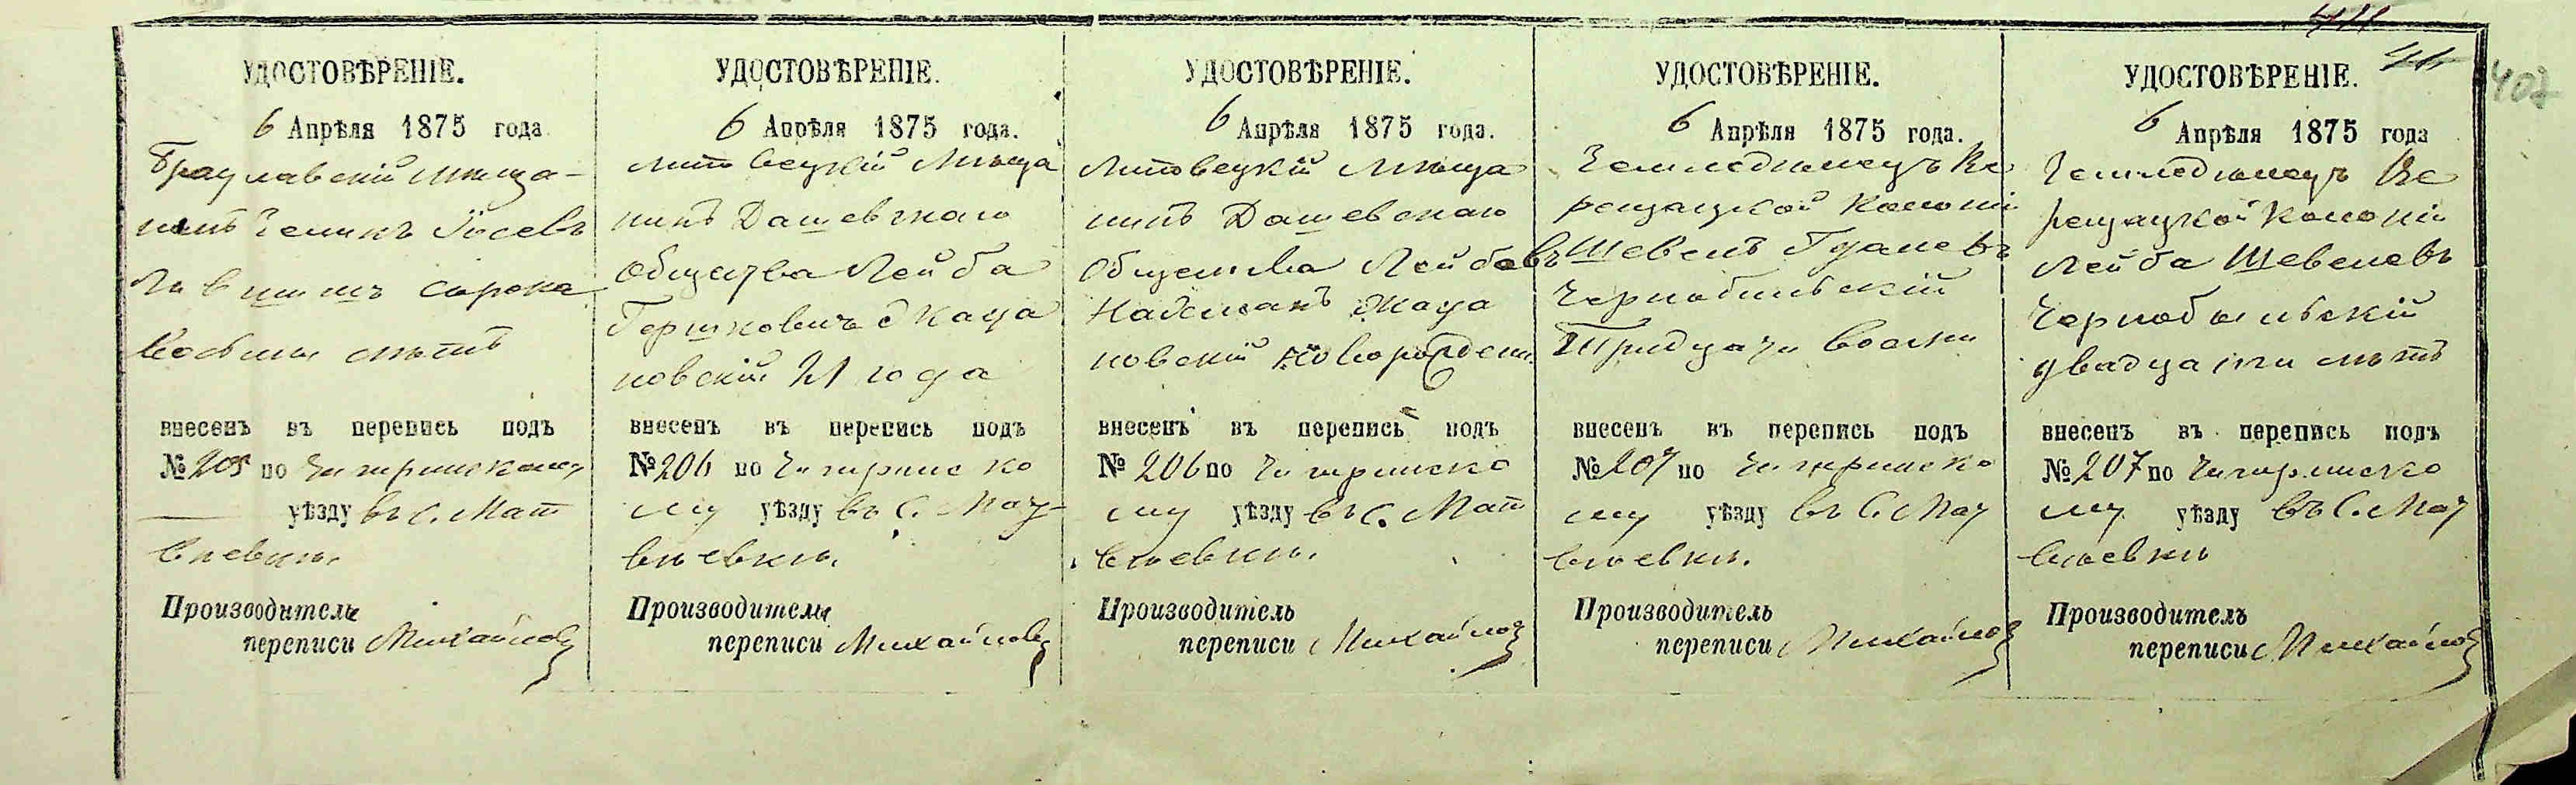 411
41
407
УДОСТОВѢРЕНІЕ.
6 Апрѣля 1875 года
Брацлавскій мѣща-
нинъ Зеликъ Іосевъ
сорока
восьми лѣтъ
внесенъ въ перепись подъ
№ 205 по Чигиринскому
уѣзду въ с. Мат
вѣевки.
Производитель
переписи Михайловъ
УДОСТОВѢРЕНІЕ.
6 Апрѣля 1875 года.
Липовецкій мѣща
нинъ Дашевскаго
общества Лейба
Гершковичъ Жаца
новскій 21 года
внесенъ въ перепись подъ
№ 206 по Чигиринско
му уѣзду въ с. Мат-
вѣевки.
Производитель
переписи Михайловъ
УДОСТОВѢРЕНІЕ.
6 Апрѣля 1875 года.
Липовецкій мѣща
нинъ Дашевскаго
общества Лейбовъ
Жаца
новскій новорожден.
внесенъ въ перепись подъ
№ 206 по Чигиринско
му уѣзду въ с. Мат
вѣевки.
Производитель
переписи Михайлов
УДОСТОВѢРЕНІЕ.
6 Апрѣля 1875 года.
Земледѣлецъ Ке
рещацкой колоніи
Шевелъ
Чернобильскій
Тридцати восьми
внесенъ въ перепись подъ
№ 207 по Чигиринско
му уѣзду въ с. Мат
вѣевки.
Производитель
переписи Михайлов
УДОСТОВѢРЕНІЕ.
6 Апрѣля 1875 года
Земледѣлецъ Ке
рещацкой колоніи
Лейба Шевелевъ
Чернобыльскій
двадцати лѣтъ
внесенъ въ перепись подъ
№ 207 по Чигиринско
му уѣзду въ с. Мат
вѣевки
Производитель
переписи Михайлов